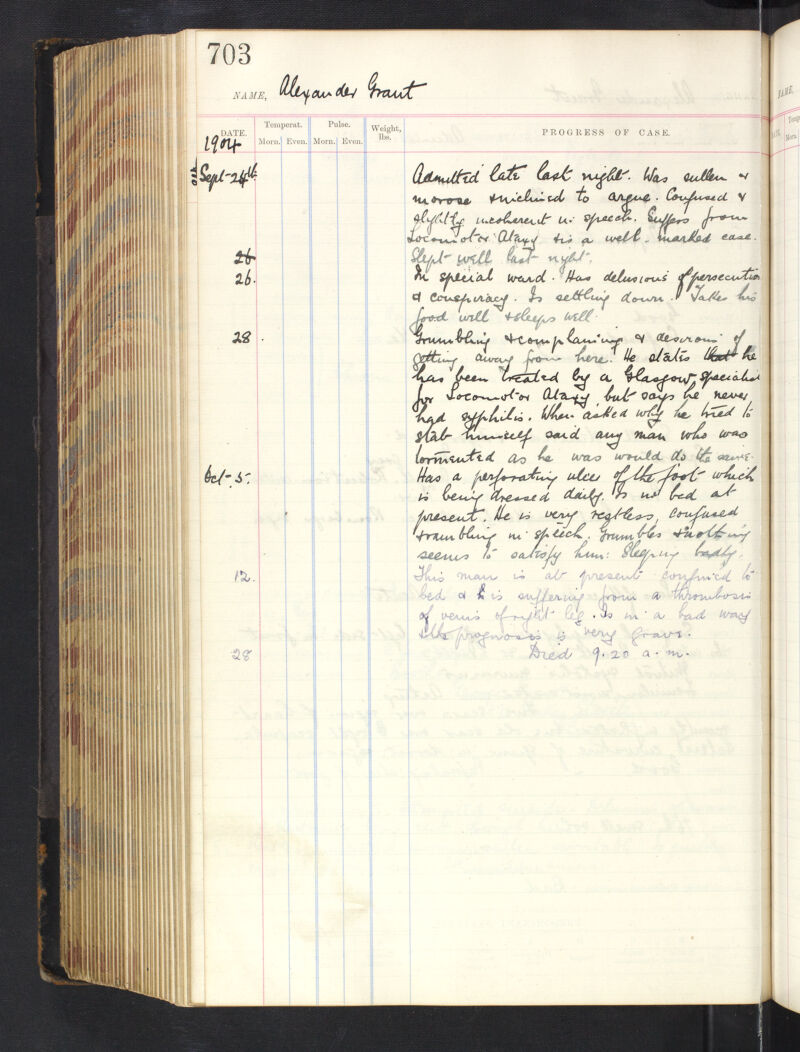 703
NAME, Alexander Grant
DATE. Temperat. Pulse. Weight, lbs. PROGRESS OF CASE.
Morn. Even. Morn. Even.
1904
Sept 24th Admitted late last night. Was sullen &
morose & inclined to argue. Confused &
slightly incoherent in speech. Suffers from
Locomotor Ataxy & is a well-marked case.
26 Slept well last night.
26. In special ward. Has delusions of persecution
& conspiracy. Is settling down. Takes his
food well & sleeps well.
28 Grumbling & complaining & desirous of
getting away from here. He states that he
has been treated by a Glasgow specialist
for Locomotor Ataxy but says he never
had syphilis. When asked why he tried to
stab himself said any man who was
tormented as he was would do the same.
Oct. 5. Has a perforating ulcer of the foot which
is being dressed daily. Is in bed at
present. He is very restless, confused
& rambling in speech. Grumbles & nothing
seems to satisfy him. Sleeping badly.
12. This man is at present confined to
bed & is suffering from a thrombosis
of veins of right leg. Is in a bad way
& prognosis is very grave.
28 Died 9.20 a.m.
NAME,